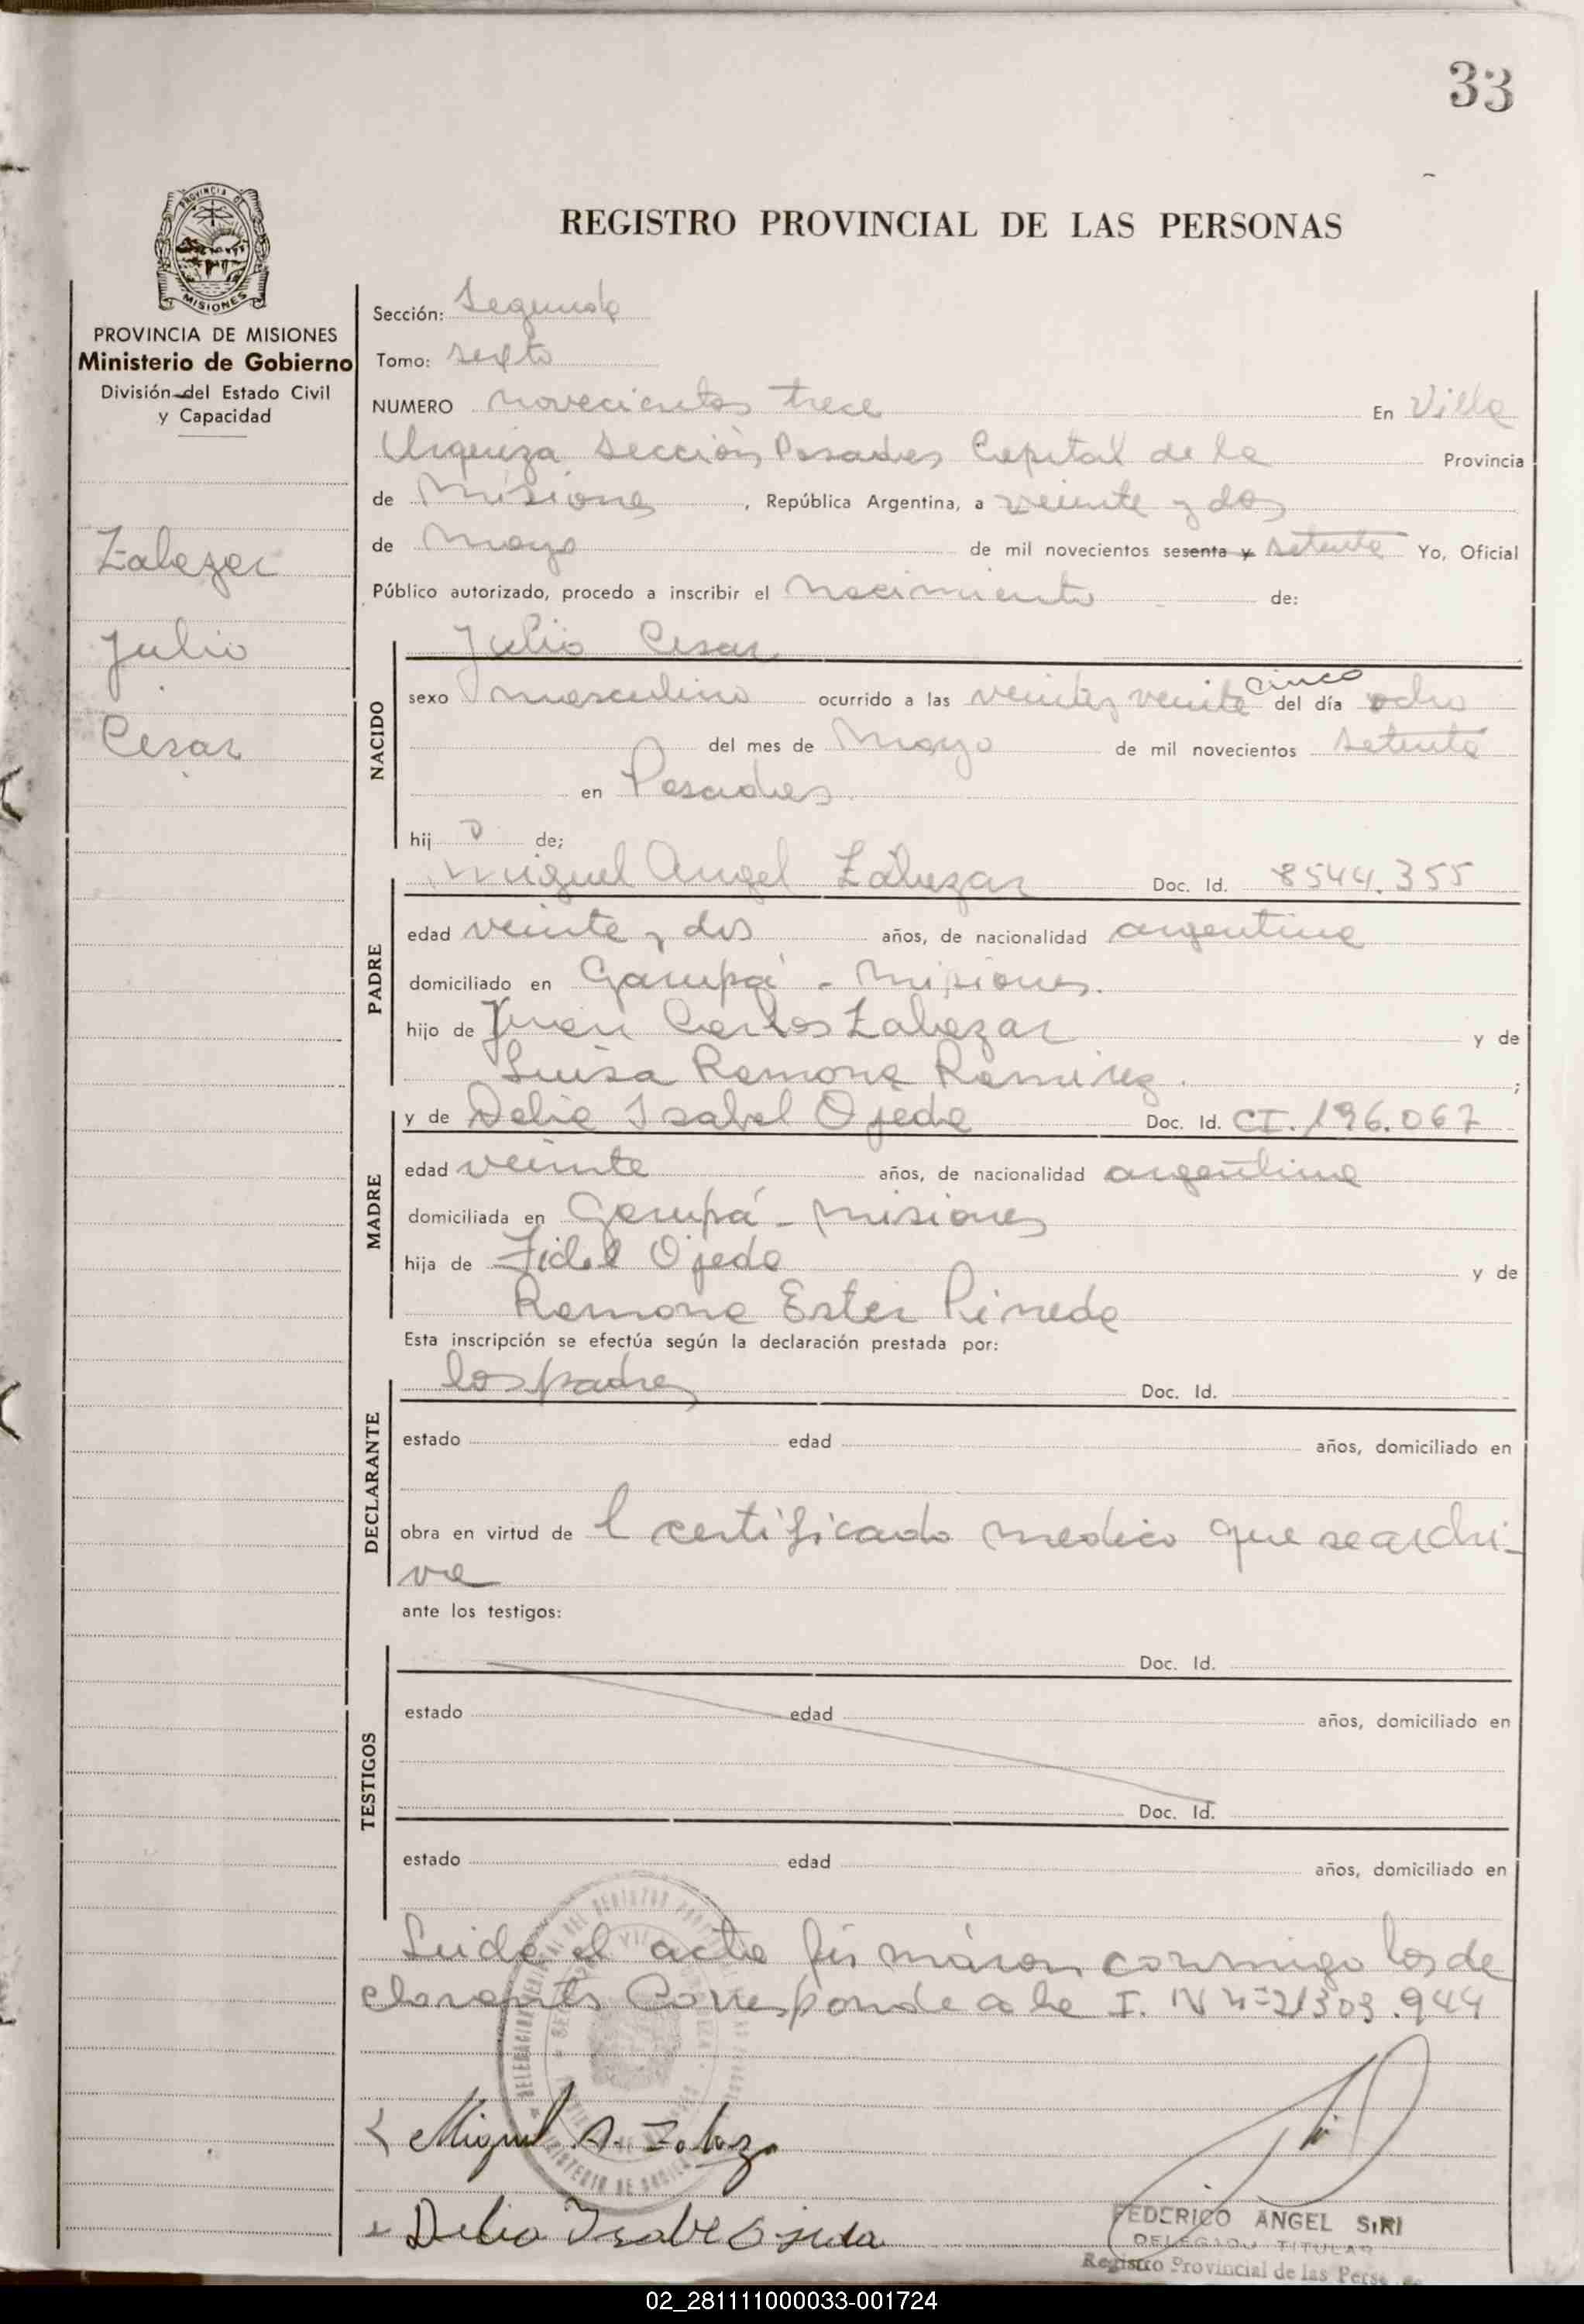 33
PROVINCIA DE
MISIONES
REGISTRO PROVINCIAL DE LAS PERSONAS
PROVINCIA DE MISIONES
Ministerio de Gobierno
División del Estado Civil
y Capacidad
Zabazar
Julio
Cesar
Sección: Segunda
Tomo: sexto
NUMERO novecientos trece En Villa
Urquiza Sección Posadas Capital de la Provincia
de Misiones, República Argentina, a veinte y dos
de mayo de mil novecientos sesenta y setenta Yo, Oficial
Público autorizado, procedo a inscribir el nacimiento de:
NACIDO
Julio Cesar
sexo masculino ocurrido a las veintes veinte cinco del día ocho
del mes de mayo de mil novecientos setenta
en Posadas
hijo de;
PADRE
Miguel Angel Zabazar Doc. Id. 8544.355
edad veinte y dos años, de nacionalidad argentina
domiciliado en Garupá - Misiones.
hijo de Juan Carlos Zabazar y de
Luisa Ramona Ramirez. ;
MADRE
y de Delia Isabel Ojeda Doc. Id. CI. 196.067
edad veinte años, de nacionalidad argentina
domiciliada en Garupá - Misiones
hija de Fidel Ojeda y de
Ramona Ester Pineda
Esta inscripción se efectúa según la declaración prestada por:
DECLARANTE
los padres Doc. Id.
estado edad años, domiciliado en
obra en virtud de l certificado medico que se archi-
va
ante los testigos:
TESTIGOS
Doc. Id.
estado edad años, domiciliado en
Doc. Id.
estado edad años, domiciliado en
Leida el acta firmaron conmigo los de
clarantes Corresponde a la I. Nº 21303.944
Miguel A. Zabaza
Delia Isabel Ojeda
FEDERICO ANGEL SIRI
DELEGADO TITULAR
Registro Provincial de las Perso
02_281111000033-001724